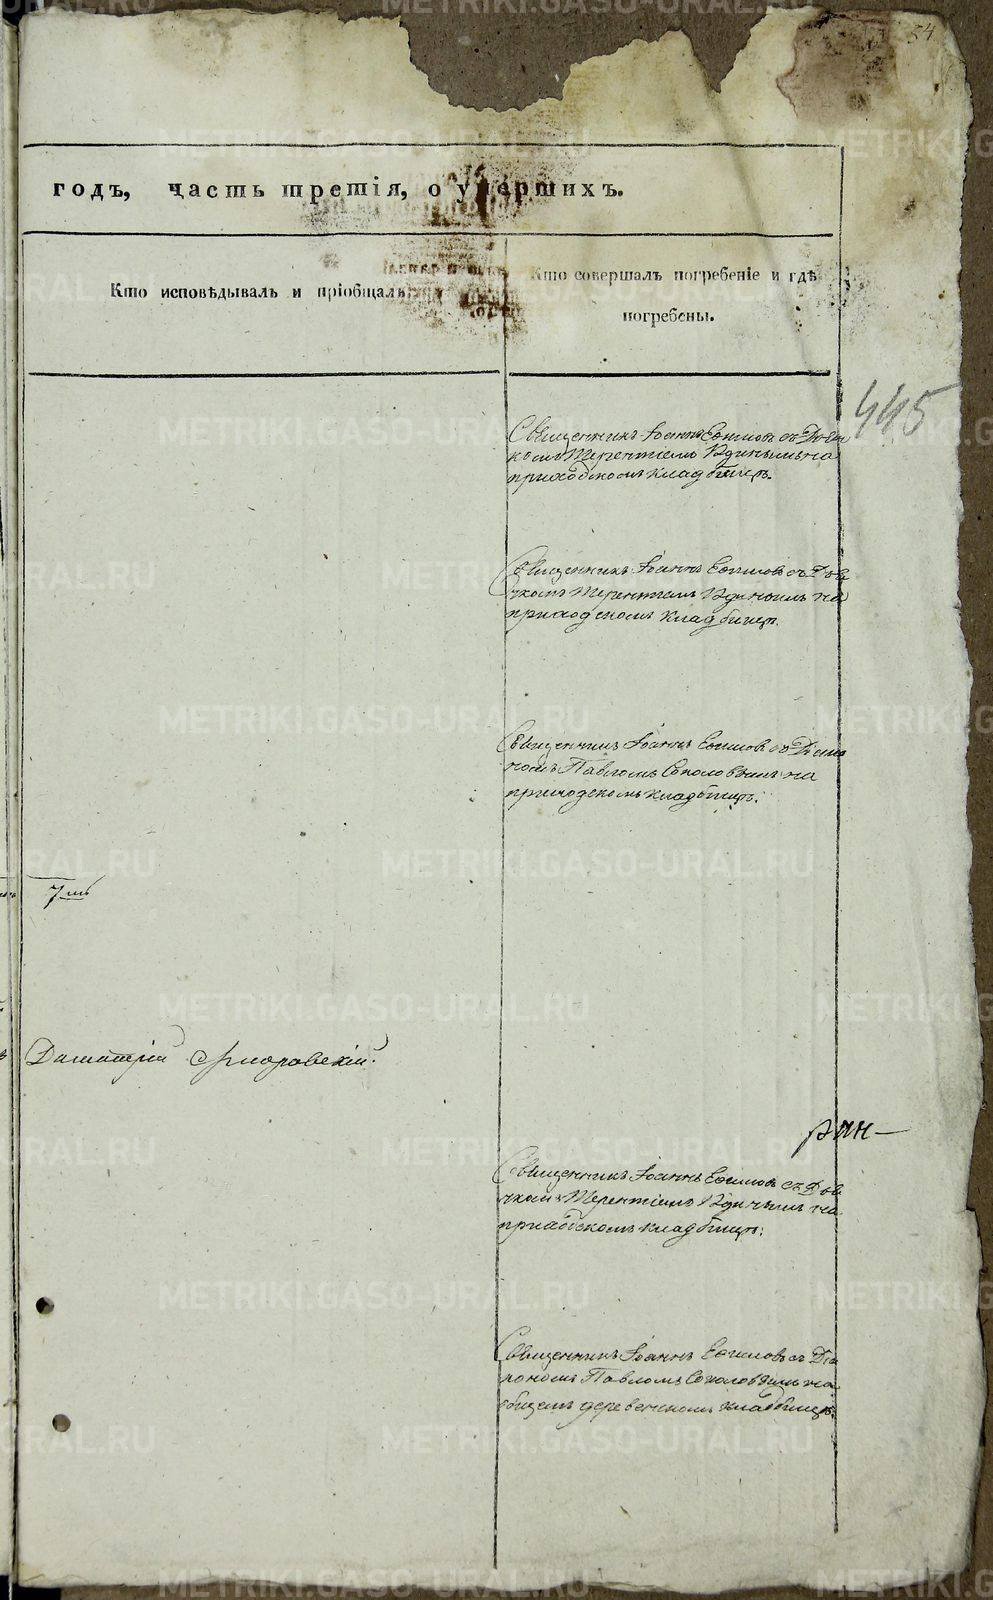 54
годъ, часть третія, о умершихъ.
Кто исповѣдывалъ и пріобщалъ
Кто совершалъ погребеніе и гдѣ
погребены.
445
Священникъ Іоаннъ Евфимовъ съ Дьяч
комъ Терентіемъ Удинымъ на
приходскомъ кладбищѣ.
Священникъ Іоаннъ Евфимовъ съ Дья
чкомъ Терентіемъ Удинымъ на
приходскомъ кладбищѣ.
Священникъ Іоаннъ Евфимовъ съ Діако
номъ Павломъ Соколовымъ на
приходскомъ кладбищѣ.
Священникъ Іоаннъ Евфимовъ съ Дья
чкомъ Терентіемъ Удинымъ на
приходскомъ кладбищѣ.
Священникъ Іоаннъ Евфимовъ съ Діа
кономъ Павломъ Соколовымъ на
общемъ деревенскомъ кладбищѣ.
METRIKI.GASO-URAL.RU